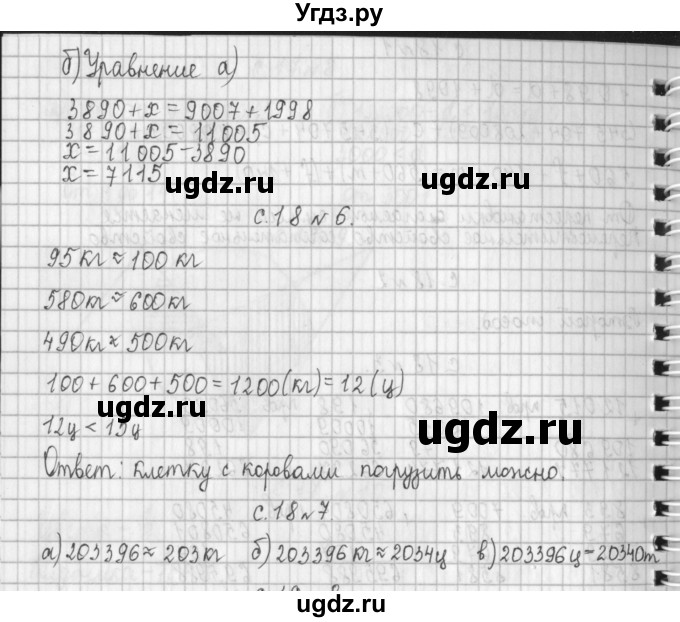 Угдз.ру
б) Уравнение а)
3890+x=9007+1998
3890+x=11005
x=11005-3890
x=7115
ugdz.ru
ugdz.ru
с.18 №6.
95кг≈100кг
580кг≈600кг
490кг≈500кг
100+600+500=1200(кг)=12(ц)
ugdz.ru
ugdz.ru
12ц<15ц
Ответ: клетку с коровами погрузить можно.
с.18 №7.
а) 203396≈203кг б) 203396кг≈2034ц в) 203396ц≈20340т
ugdz.ru